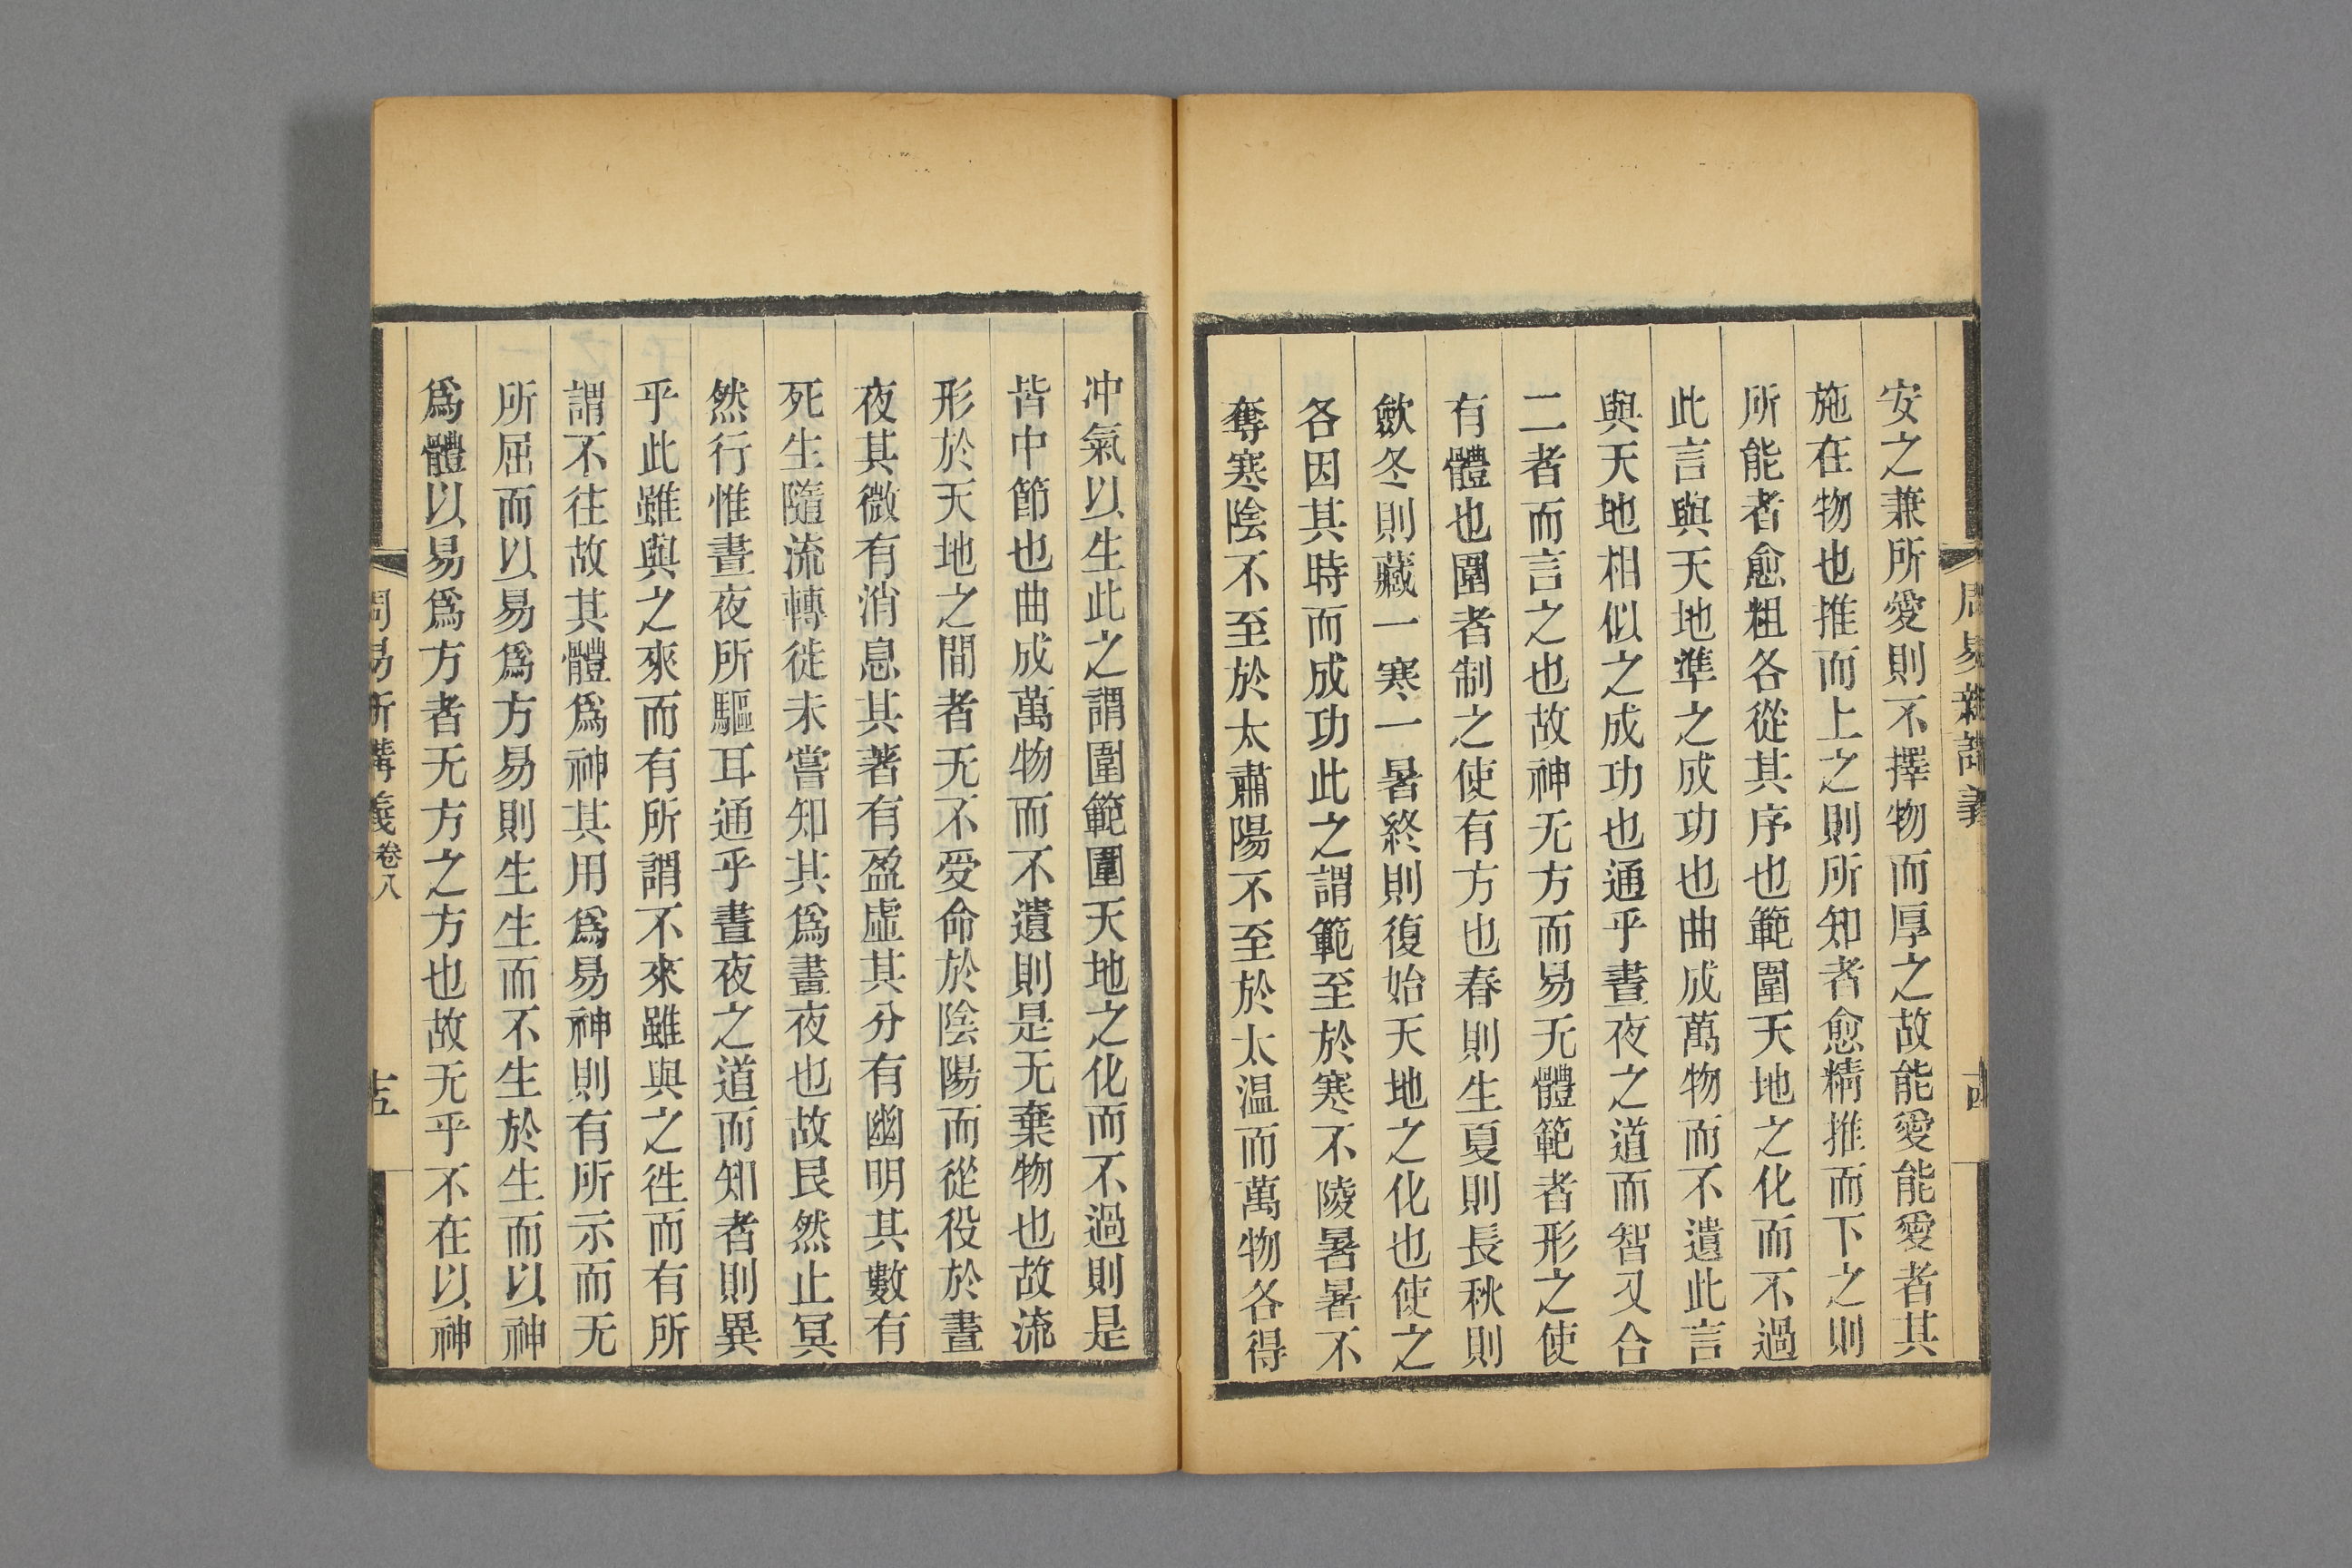 周易新講義
十四
安之兼所愛則不擇物而厚之故能愛能愛者其
施在物也推而上之則所知者愈精推而下之則
所能者愈粗各從其序也範圍天地之化而不過
此言與天地準之成功也曲成萬物而不遺此言
與天地相似之成功也通乎晝夜之道而智又合
二者而言之也故神无方而易无體範者形之使
有體也圍者制之使有方也春則生夏則長秋則
斂冬則藏一寒一暑終則復始天地之化也使之
各因其時而成功此之謂範至於寒不陵暑暑不
奪寒陰不至於太肅陽不至於太温而萬物各得
冲氣以生此之謂圍範圍天地之化而不過則是
皆中節也曲成萬物而不遺則是无棄物也故流
形於天地之間者无不受命於陰陽而從役於晝
夜其微有消息其著有盈虛其分有幽明其數有
死生隨流轉徙未嘗知其為晝夜也故艮然止冥
然行惟晝夜所驅耳通乎晝夜之道而知者則異
乎此雖與之來而有所謂不來雖與之徃而有所
謂不往故其體爲神其用爲易神則有所示而无
所屈而以易爲方易則生生而不生於生而以神
爲體以易爲方者无方之方也故无乎不在以神
周易新講義 卷八
十五